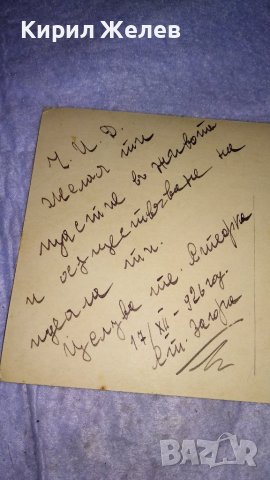 Кирил Желев
Ч. И. Д.
Желая ти
щастие въ живота
и осѫществяване на
идеала ти.
Целува те
17/XII - 926 год.
Ст. Загора
BAZAR
bg